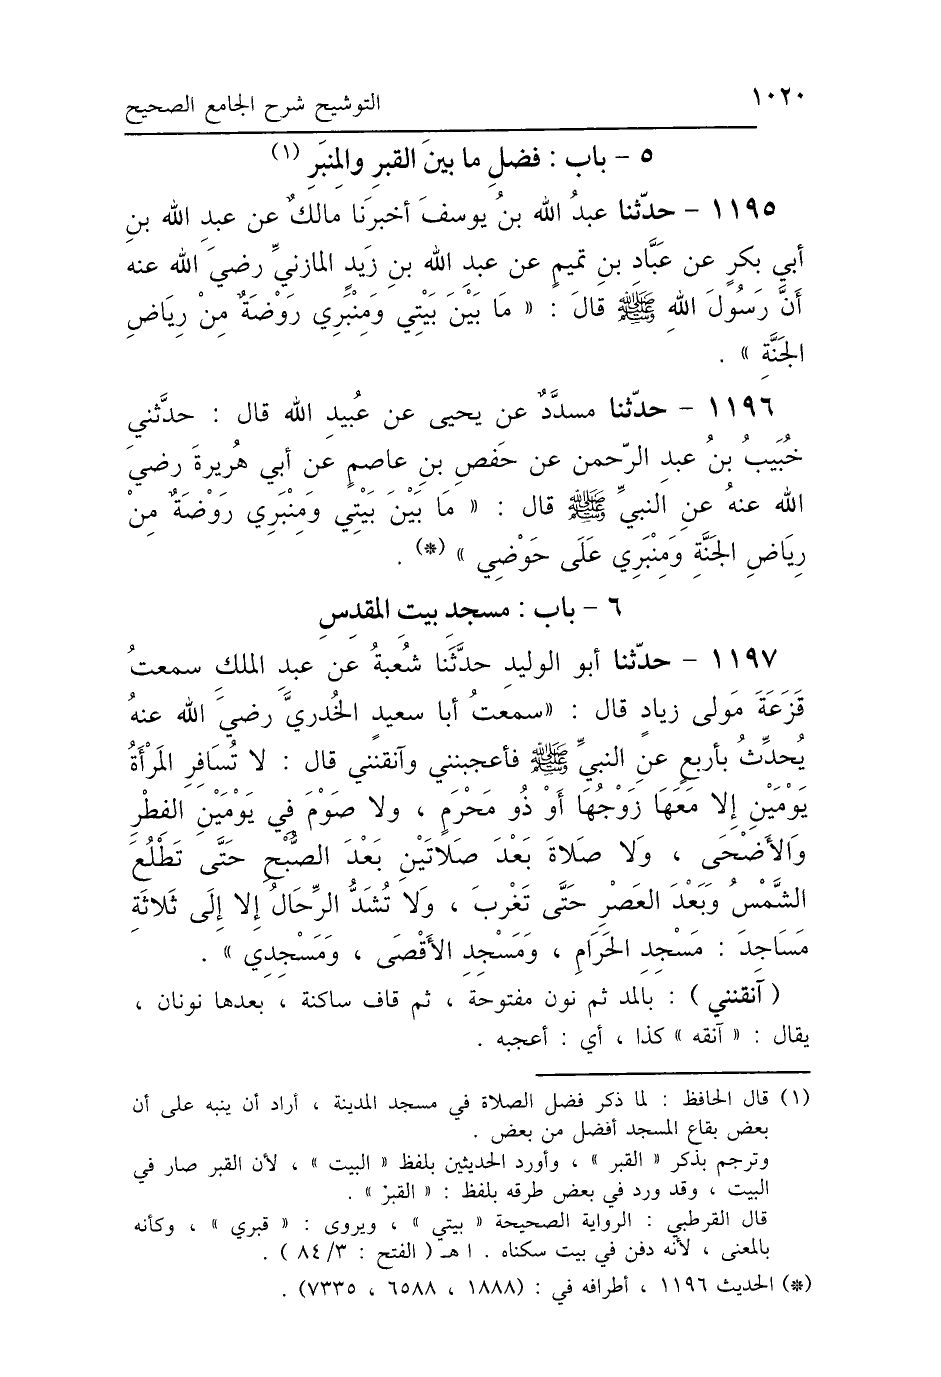 ١٠٢٠ التوشيح شرح الجامع الصحيح
٥ - باب : فضلِ ما بينَ القبرِ والمِنبَرِ (١)
١١٩٥ - حدّثنا عبدُ الله بنُ يوسفَ أخبرَنا مالكٌ عن عبدِ الله بنِ
أبي بكرٍ عن عَبَّادِ بنِ تميمٍ عن عبدِ الله بنِ زَيدٍ المازنيِّ رضيَ الله عنه
أَنَّ رَسُولَ اللهِ ﷺ قالَ : « مَا بَيْنَ بَيْتِي وَمِنْبَرِي رَوْضَةٌ مِنْ رِيَاضِ
الجَنَّةِ » .
١١٩٦ - حدّثنا مسدَّدٌ عن يحيى عن عُبيدِ الله قال : حدَّثني
خُبَيبُ بنُ عبدِ الرّحمن عن حَفصِ بنِ عاصمٍ عن أبي هُريرةَ رضيَ
الله عنهُ عنِ النبيِّ ﷺ قال : « مَا بَيْنَ بَيْتِي وَمِنْبَرِي رَوْضَةٌ مِنْ
رِيَاضِ الجَنَّةِ وَمِنْبَرِي عَلَى حَوْضِي » (*) .
٦ - باب : مسجدِ بيتِ المقدِسِ
١١٩٧ - حدّثنا أبو الوليدِ حدَّثَنا شُعبةُ عن عبدِ الملكِ سمعتُ
قَزَعَةَ مَولى زيادٍ قال : «سمعتُ أبا سعيدٍ الخُدريَّ رضيَ الله عنهُ
يُحدِّثُ بأربعٍ عنِ النبيِّ ﷺ فأعجبنني وآنقنني قال : لا تُسَافِرِ المَرْأَةُ
يَوْمَيْنِ إلا مَعَهَا زَوْجُهَا أَوْ ذُو مَحْرَمٍ ، ولا صَوْمَ فِي يَوْمَيْنِ الفِطْرِ
وَالأَضْحَى ، وَلا صَلاةَ بَعْدَ صَلاتَيْنِ بَعْدَ الصُّبْحِ حَتَّى تَطْلُعَ
الشَّمْسُ وَبَعْدَ العَصْرِ حَتَّى تَغْرِبَ ، وَلا تُشَدُّ الرِّحَالُ إلا إِلَى ثَلاثَةِ
مَسَاجِدَ : مَسْجِدِ الحَرَامِ ، وَمَسْجِدِ الأَقْصَى ، وَمَسْجِدِي » .
( آنقنني ) : بالمد ثم نون مفتوحة ، ثم قاف ساكنة ، بعدها نونان ،
يقال : « آنقه » كذا ، أي : أعجبه .
(١) قال الحافظ : لما ذكر فضل الصلاة في مسجد المدينة ، أراد أن ينبه على أن
بعض بقاع المسجد أفضل من بعض .
وترجم بذكر « القبر » ، وأورد الحديثين بلفظ « البيت » ، لأن القبر صار في
البيت ، وقد ورد في بعض طرقه بلفظ : « القبرْ » .
قال القرطبي : الرواية الصحيحة « بيتي » ، ويروى : « قبري » ، وكأنه
بالمعنى ، لأنه دفن في بيت سكناه . ا هـ ( الفتح : ٣/ ٨٤ ) .
(*) الحديث ١١٩٦ ، أطرافه في : (١٨٨٨ ، ٦٥٨٨ ، ٧٣٣٥) .